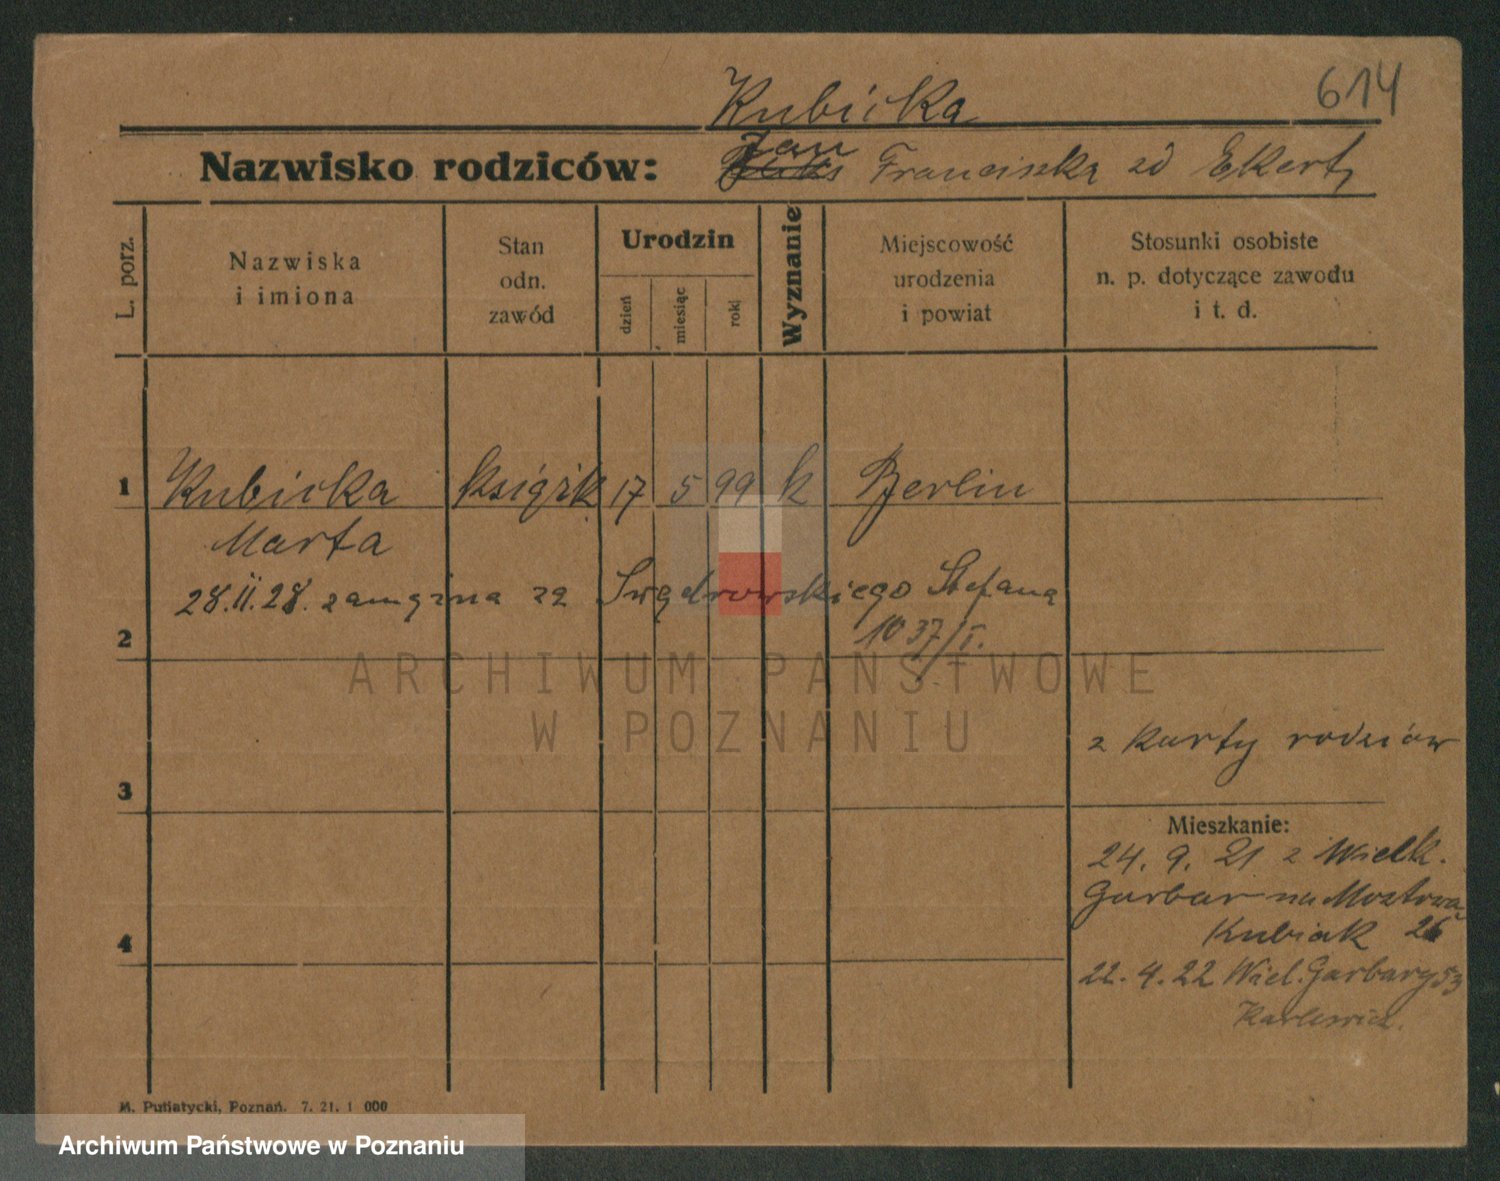 Kubicka 614
Nazwisko rodziców: Jan Franciszka zd Ekert
L. porz.
Nazwiska i imiona
Stan odn. zawód
Urodzin
dzień
miesiąc
rok
Wyznanie
Miejscowość urodzenia i powiat
Stosunki osobiste n. p. dotyczące zawodu i t. d.
1 Kubicka książk 17 5 99 k Berlin
Marta
28.II.28. zamężna za Swędrowskiego Stefana
2 1037/I.
ARCHIWUM PAŃSTWOWE
W POZNANIU
z karty rodziców
3
Mieszkanie:
24. 9. 21 z Wielk.
Garbar na Mostową
4 Kubiak 26
22. 4. 22 Wiel. Garbary 53
Karlewicz.
M. Putiatycki, Poznań. 7. 21. 1 000
Archiwum Państwowe w Poznaniu